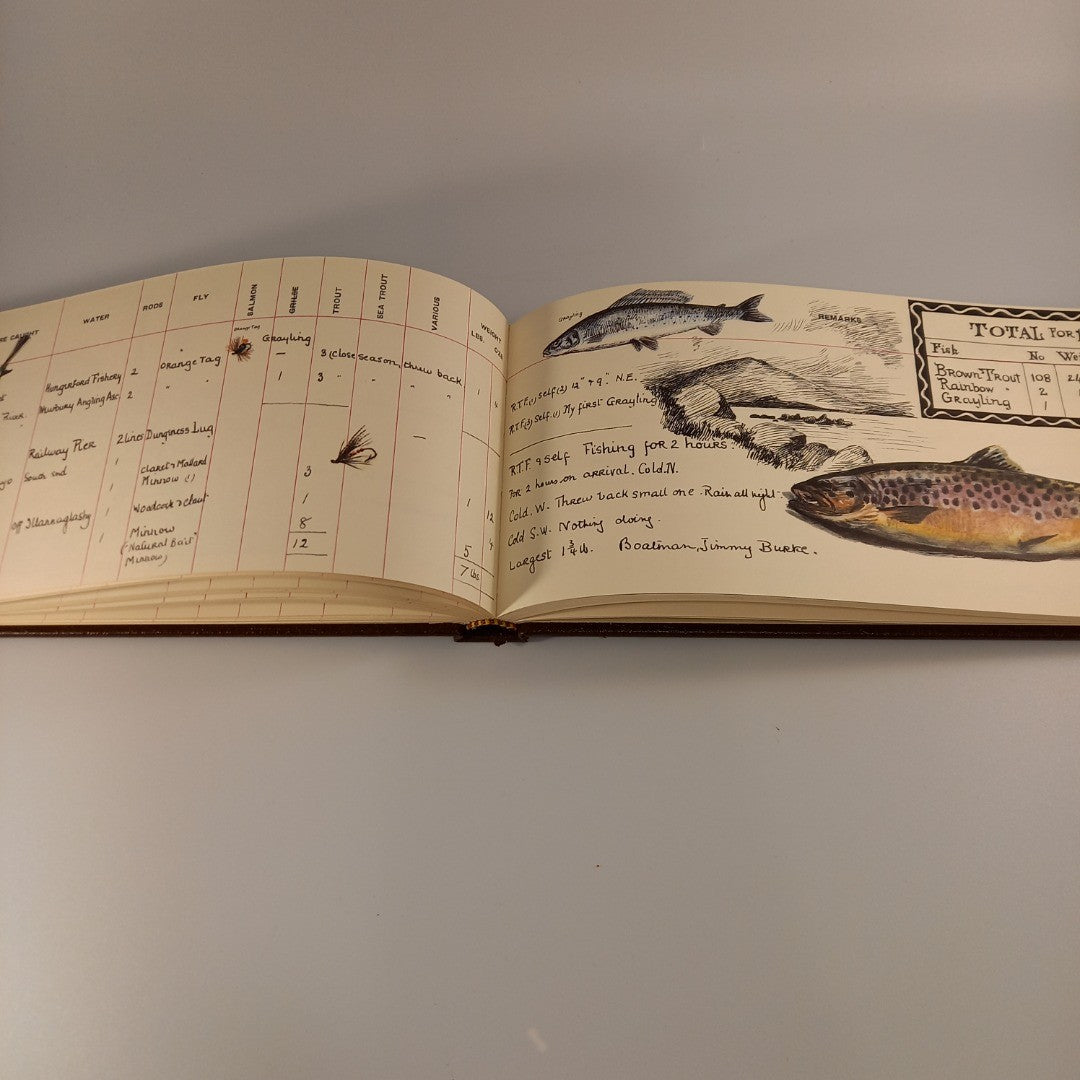 CAUGHT WATER RODS FLY SALMON GRILSE TROUT SEA TROUT VARIOUS WEIGHT
LBS.
Orange Tag
Grayling
Hungerford Fishery 2 Orange Tag — 3 (Close season, threw back
Newbury Angling Asc. 2 " " 1 3 " "
Railway Pier 2 Lines Dungness Lug —
South End 1 Claret & Mallard 3
Minnow (1)
1 Woodcock & Claret 1 1 12
Off Illannaglashy 1 Minnow 8
(Natural Bait 12 5
Minnow) 7 lbs
Grayling
REMARKS
R.T.F. (1) Self (2) 12" & 9". N.E.
R.T.F. (3) Self. (1) My first Grayling
R.T.F. & Self Fishing for 2 hours.
For 2 hours on arrival. Cold. N.
Cold. W. Threw back small one. Rain all night.
Cold S.W. Nothing doing.
Largest 1 3/4 lb. Boatman, Jimmy Burke.
TOTAL FOR
Fish No We
Brown Trout 108
Rainbow " 2
Grayling 1